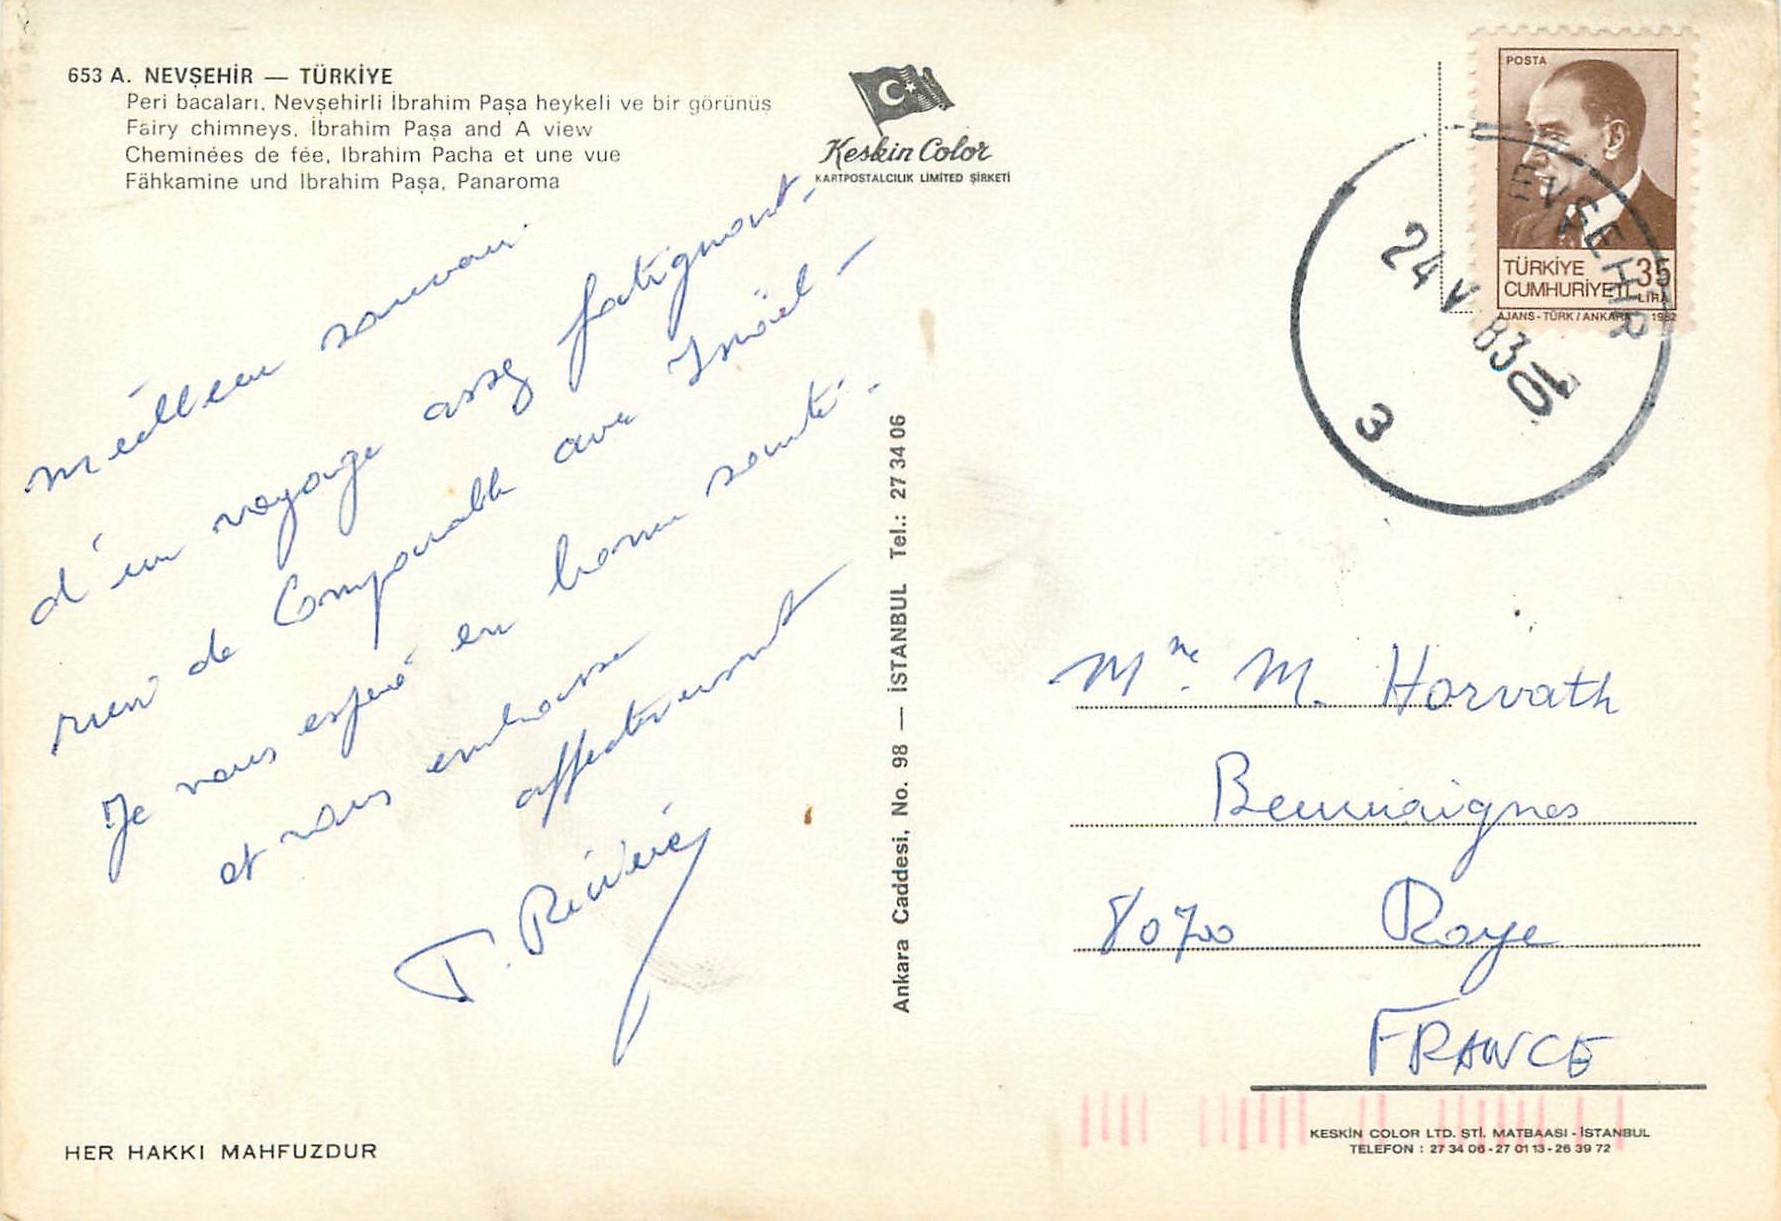 653 A. NEVŞEHİR — TÜRKİYE
Peri bacaları, Nevşehirli İbrahim Paşa heykeli ve bir görünüş
Fairy chimneys, İbrahim Paşa and A view
Cheminées de fée, Ibrahim Pacha et une vue
Fähkamine und İbrahim Paşa, Panaroma
Keskin Color
KARTPOSTALCILIK LİMİTED ŞİRKETİ
meilleur souvenir
d'un voyage assez fatignant -
rien de Comparable avec Israël -
Je vous espère en bonne santé.
et vous embrasse
affectueusement
T. Rivière
Ankara Caddesi, No. 98 — İSTANBUL Tel.: 27 34 06
POSTA
TÜRKİYE
CUMHURİYETİ
35
LİRA
AJANS-TÜRK/ANKARA 1982
EVŞEHİR
24 V 83 10
3
Mme. M. Horvath
Beuvraignes
80700 Roye
FRANCE
HER HAKKI MAHFUZDUR
KESKİN COLOR LTD. ŞTİ. MATBAASI - İSTANBUL
TELEFON : 27 34 06 - 27 01 13 - 26 39 72